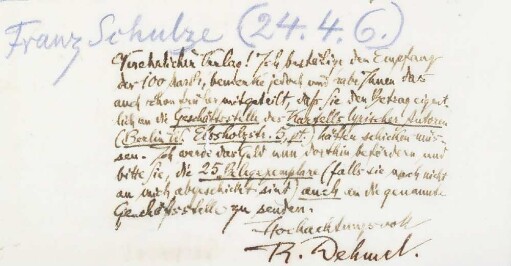 Franz Schulze (24. 4. 6.)
Verehrlicher Verlag! Ich bestätige den Empfang
der 100 Mark, bemerke jedoch und habe Ihnen das
auch schon früher mitgeteilt, daß Sie den Betrag eigent-
lich an die Geschäftsstelle des Kartells lyrischer Autoren
(Berlin W, Eissholzstr. 5, pt.) hätten schicken müs-
sen. Ich werde das Geld nun dorthin befördern und
bitte Sie, die 25 Belegexemplare (falls sie noch nicht
an mich abgeschickt sind) auch an die genannte
Geschäftsstelle zu senden.
Hochachtungsvoll
R. Dehmel.